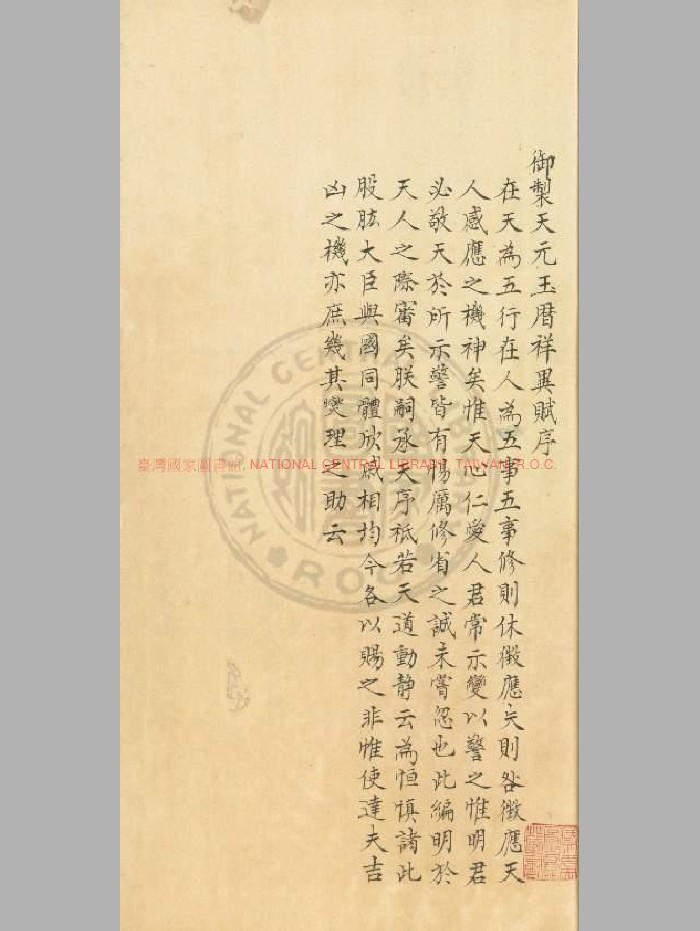 御製天元玉暦祥異賦序
在天為五行在人為五事五事修則休徵應失則咎徵應天
人感應之機神矣惟天心仁愛人君常示變以警之惟明君
必敬天於所示警皆有惕厲修省之誠未嘗忽也此編明於
天人之際審矣朕嗣承天序祗若天道動静云為恒慎諸此
股肱大臣與國同體欣戚相均今各以賜之非惟使達夫吉
凶之機亦庶幾其爕理之助云
臺灣國家圖書館, NATIONAL CENTRAL LIBRARY, TAIWAN R.O.C.
NATIONAL CENTRAL LIBRARY
R.O.C